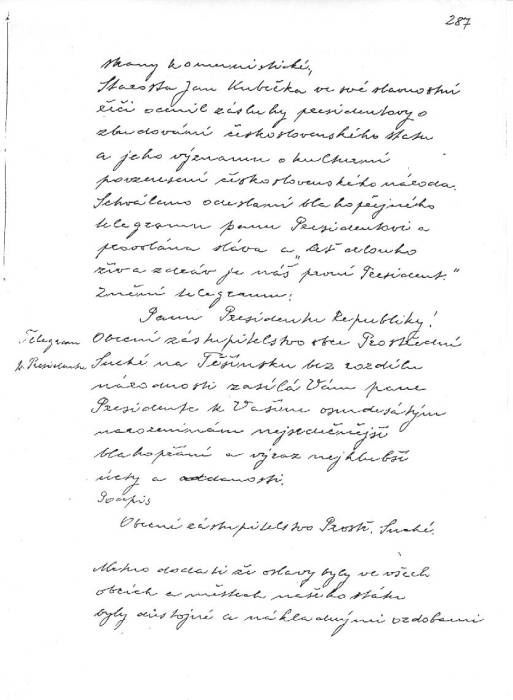 287
strany komunistické,
Starosta Jan Kubečka ve své slavnostní
řeči ocenil zásluhy presidentovy o
zbudování československého státu
a jeho významu o kulturní
povznesení československého národa.
Schváleno odeslání blahopřejného
telegramu panu Presidentovi a
provolána sláva a „ať dlouho
živ a zdráv je náš první President."
Znění telegramu:
Panu Presidentu Republiky!
Telegram
k Presidentu
Obecní zástupitelstvo obce Prostřední
Suché na Těšínsku bez rozdílu
národnosti zasílá Vám pane
Presidente k Vašim osmdesátým
narozeninám nejsrdečnější
blahopřání a výraz nejhlubší
úcty a oddanosti.
Podpis
Obecní zástupitelstvo Prostř. Suché.
Nutno dodati že oslavy byly ve všech
obcích a městech našeho státu
byly důstojné a nákladnými ozdobami